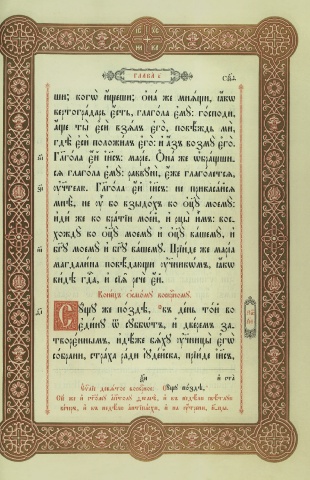 ГЛАВА к҃
ши; когѡ̀ и҆́щеши; Ѻ҆на́ же мнѧ́щи, ꙗ҆́кѡ
вертогра́дарь є҆́сть, глаго́ла є҆мꙋ̀: го́споди,
а҆́ще ты̀ є҆сѝ взѧ́лъ є҆го̀, повѣ́ждь мѝ,
гдѣ̀ є҆сѝ положи́лъ є҆го̀: и҆ а҆́зъ возмꙋ̀ є҆го̀.
Гл҃го́ла є҆́й і҆и҃съ: марі́е. Ѻ҆на́ же ѡ҆бра́щши-
сѧ глаго́ла є҆мꙋ̀: раввꙋні̀, є҆́же глаго́летсѧ,
ᲂу҆чт҃лю. Гл҃го́ла є҆́й і҆и҃съ: не прикаса́йсѧ
мнѣ̀, не ᲂу҆̀ бо взыдо́хъ ко ѻ҆ц҃ꙋ̀ моемꙋ̀:
и҆ди́ же ко бра́тїи мое́й, и҆ рцы̀ и҆̀мъ: вос-
хождꙋ̀ ко ѻ҆ц҃ꙋ̀ моемꙋ̀ и҆ ѻ҆ц҃ꙋ̀ ва́шемꙋ, и҆
бг҃ꙋ моемꙋ̀ и҆ бг҃ꙋ ва́шемꙋ. Прїи́де же марі́а
магдали́на повѣ́дающи ᲂу҆чн҃кѡ́мъ, ꙗ҆́кѡ
ви́дѣ гдⷭ҇а, и҆ сїѧ̑ речѐ є҆́й.
Коне́цъ ѻ҆смо́мꙋ воскрⷭ҇номꙋ.
Сꙋ́щꙋ же по́здѣ, въ де́нь то́й во
є҆ди́нꙋ ѿ сꙋббѡ́тъ, и҆ две́ремъ за-
творє́ннымъ, и҆дѣ́же бѧ́хꙋ ᲂу҆чн҃цы̀ є҆гѡ̀
со́брани, стра́ха ра́ди і҆ꙋде́йска, прїи́де і҆и҃съ,
и҆ ста̀
Є҆ѵⷢ҇лїе девѧ́тое воскрⷭ҇ное: Сꙋ́щꙋ по́здѣ,